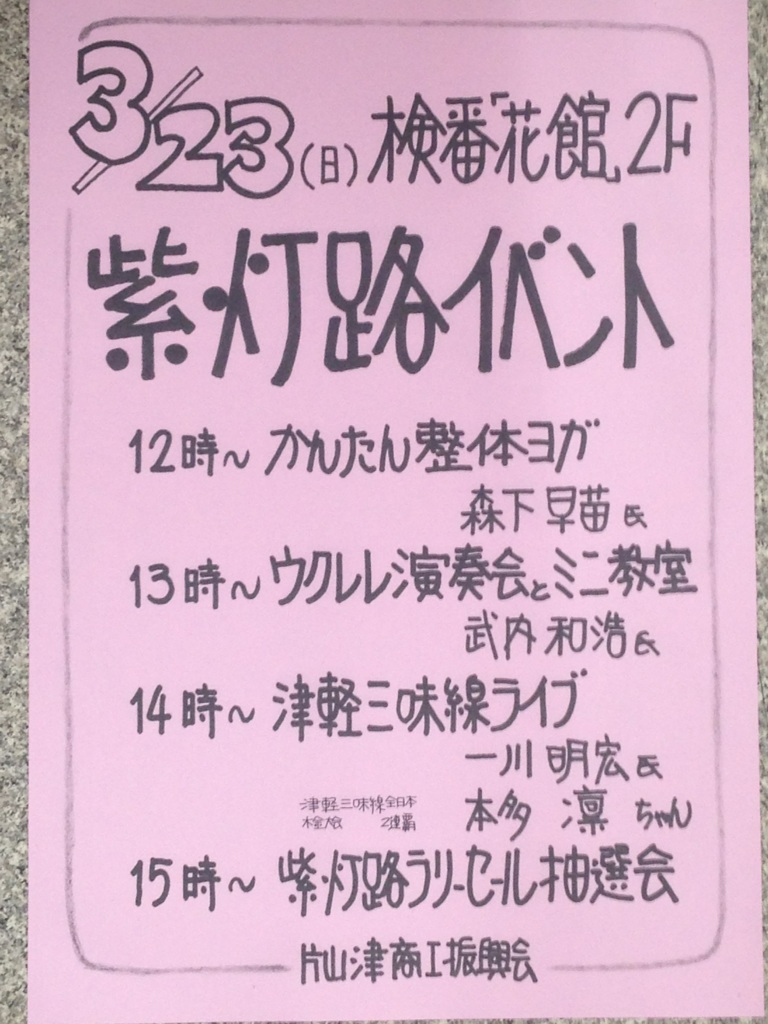 3/23(日)検番「花館」2F
紫灯路イベント
12時~ かんたん整体ヨガ
森下早苗氏
13時~ ウクレレ演奏会とミニ教室
武内和浩氏
14時~ 津軽三味線ライブ
一川明宏氏
津軽三味線全日本
金木大会 2連覇
本多 凛 ちゃん
15時~ 紫灯路ラリーセール抽選会
片山津商工振興会